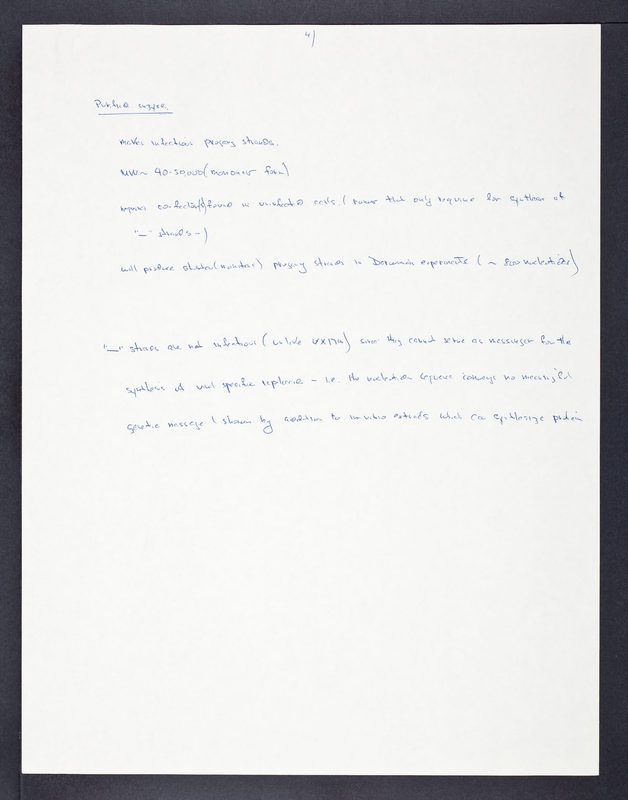 4)
Purified enzyme.
makes infectious progeny strands.
MW ~ 40-50,000 (monomer form)
requires cofactor(s) found in uninfected cells. (rumor that only required for synthesis of
"—" strands –)
will produce (monitor) progeny strands in Darwinian experiments (~ 800 nucleotides)
"—" strands are not infectious (unlike φX174) since they cannot serve as messenger for the
synthesis of viral specific replicase – i.e. the nucleotide sequence conveys no meaningful
genetic message (shown by addition to in vitro extracts which can synthesize protein